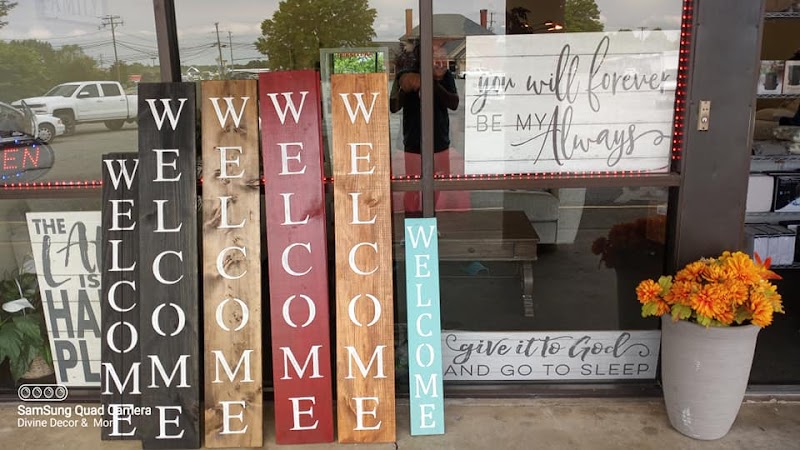 WELCOME
WELCOME
WELCOME
WELCOME
WELCOME
WELCOME
you will forever
BE MY Always
give it to God
AND GO TO SLEEP
THE
IS
HA
PL
EN
SamSung Quad Camera
Divine Decor & More